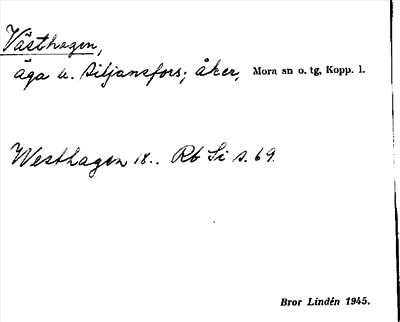 Västhagen,
äga u. Siljansfors; åker, Mora sn o. tg, Kopp. l.
Westhagen 18.. Rb Si s. 69.
Bror Lindén 1945.